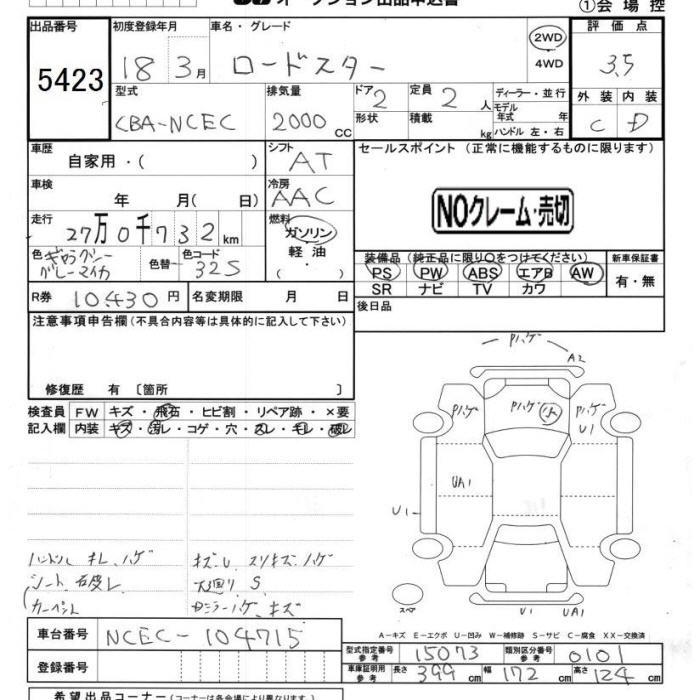 オークション出品申込書 ①会場控
出品番号 初度登録年月 車名・グレード 評価点
5423 18 3月 ロードスター 2WD 4WD 3.5
型式 排気量 ドア 2 定員 2人 ディーラー・並行 外装 内装
CBA-NCEC 2000cc 形状 積載 kg モデル年式 年 C D
ハンドル 左・右
車歴 シフト セールスポイント (正常に機能するものに限ります)
自家用・( ) AT
車検 冷房
年 月( 日) AAC NOクレーム・売切
走行 燃料
27万0千732km ガソリン・軽油・( )
色 色替 色コード 装備品 (純正品に限り○をつけてください) 新車保証書
ギャラクシーグレーマイカ 32S PS PW ABS エアB AW 有・無
SR ナビ TV カワ
R券 10430円 名変期限 月 日 後日品
注意事項申告欄 (不具合内容等は具体的に記入して下さい)
修復歴 有 〔箇所 〕
検査員 FW キズ・飛石・ヒビ割・リペア跡・×要
記入欄 内装 キズ・汚レ・コゲ・穴・スレ・キレ・破レ
Pハゲ
A2
Pハゲ Pハゲ 小 Pハゲ
U1
UA1
U1
ハンドル キレ、ハゲ キズU スリキズ、ハゲ
シート 右破レ 下廻り S
カーペット ハゲ、キズ
スペア U1 UA1
A-キズ E-エクボ U-凹み W-補修跡 S-サビ C-腐食 XX-交換済
車台番号 NCEC-104715
型式指定番号 参考 15073 類別区分番号 参考 0101
登録番号 車庫証明用 参考 長さ 399cm 幅 172cm 高さ 124cm
希望出品コーナー (コーナーは各会場により異なります)